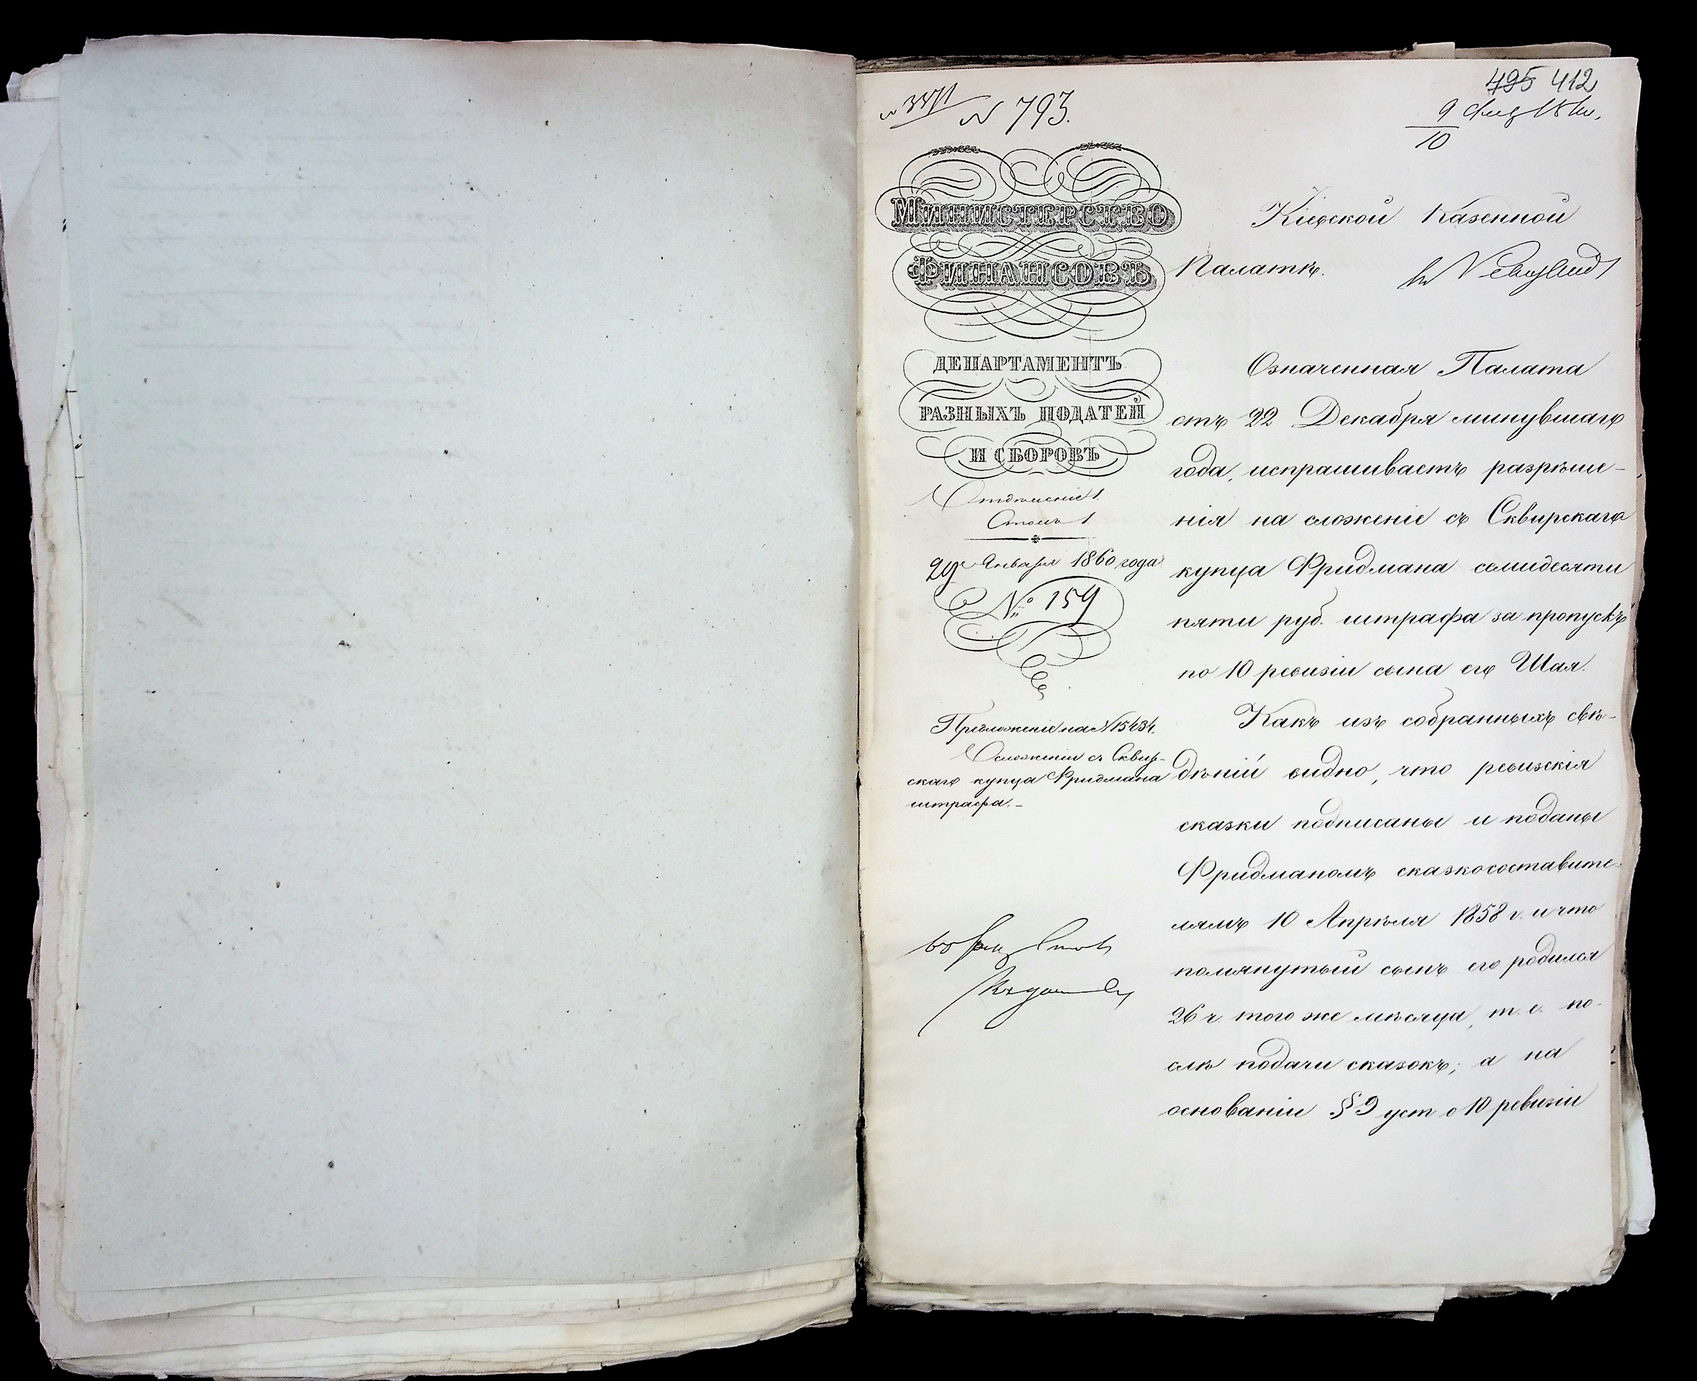 495 412
N 3371 N 793.
9
10
МИНИСТЕРСТВО
ФИНАНСОВЪ
ДЕПАРТАМЕНТЪ
РАЗНЫХЪ ПОДАТЕЙ
И СБОРОВЪ
Отдѣленіе 1
Столъ 1
29 Января 1860 года
№ 159
Предложеніе на N 15434.
О сложеніи съ Сквир-
скаго купца Фридмана
штрафа.-
Кіевской Казенной
Палатѣ.
Означенная Палата
отъ 22 Декабря минувшаго
года, испрашиваетъ разрѣше-
нія на сложеніе съ Сквирскаго
купца Фридмана семидесяти
пяти руб. штрафа за пропускъ
по 10 ревизіи сына его Шая.
Какъ изъ собранныхъ свѣ-
дѣній видно, что ревизскія
сказки подписаны и поданы
Фридманомъ сказкосоставите-
лямъ 10 Апрѣля 1858 г. и что
помянутый сынъ его родился
26 ч. того же мѣсяца, т. е. по-
слѣ подачи сказокъ; а на
основаніи § 9 уст о 10 ревизіи